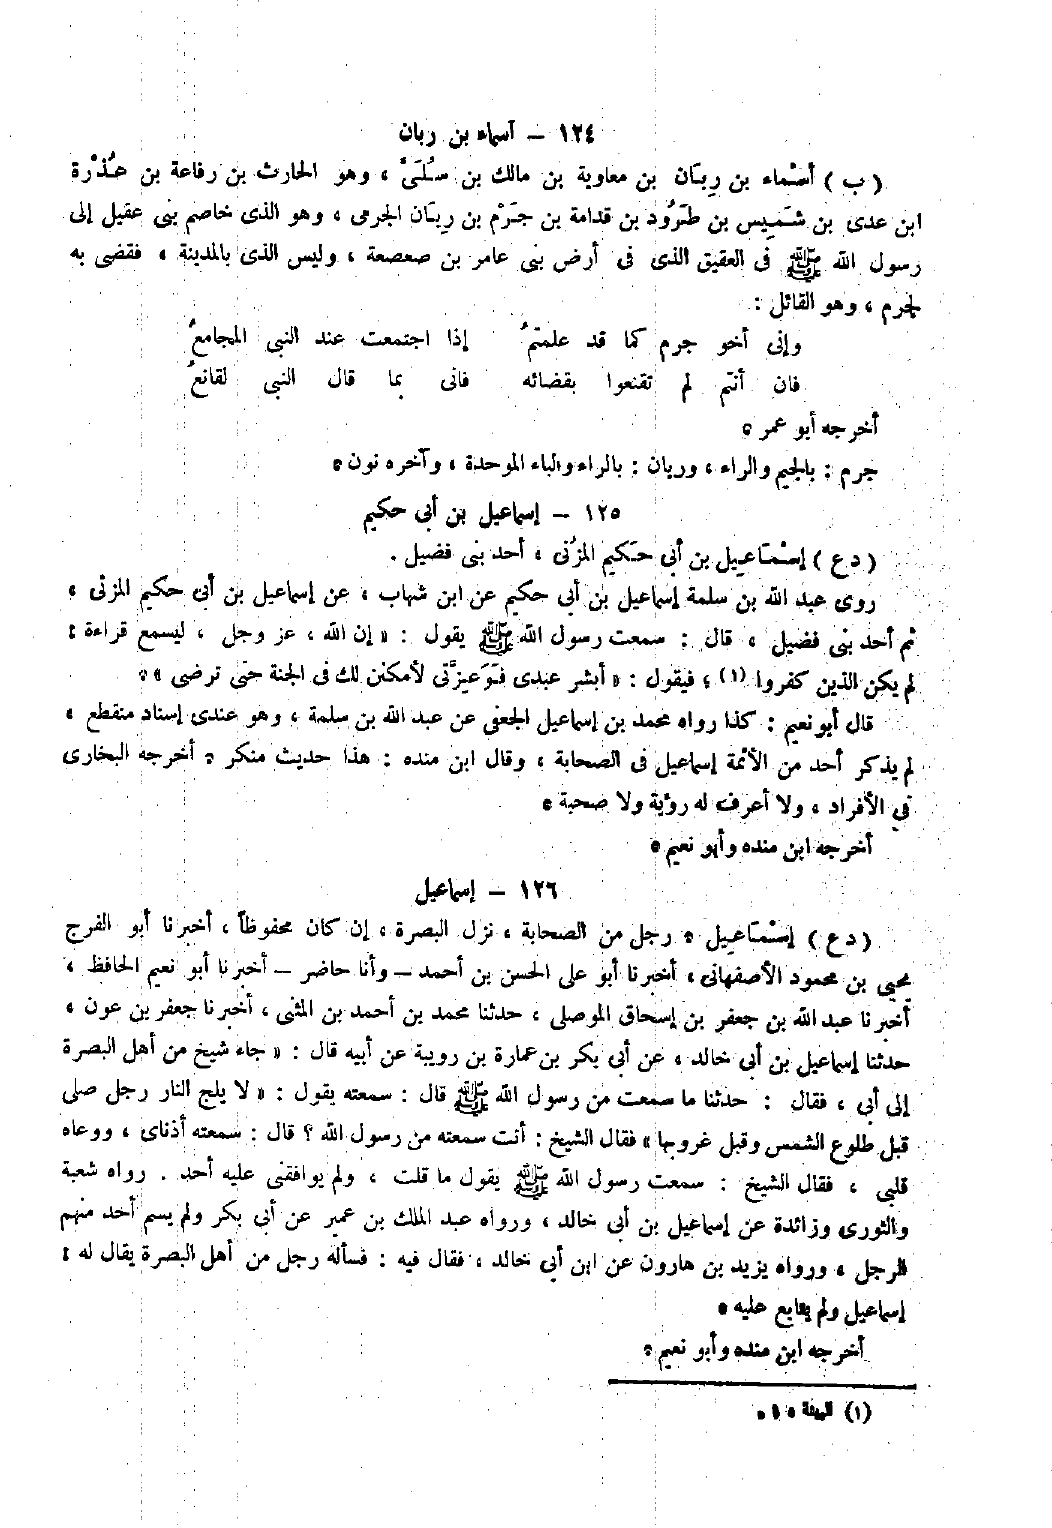 ١٢٤ – أسماء بن ربان
( ب ) أسْماء بن رِبَّان بن معاوية بن مالك بن سُلَىّ ، وهو الحارث بن رفاعة بن عُذْرة
ابن عدى بن شَمِيس بن طَرُود بن قدامة بن جَرْم بن رِبَّان الجرمى ، وهو الذى خاصم بنى عقيل إلى
رسول الله ﷺ فى العقيق الذى فى أرض بنى عامر بن صعصعة ، وليس الذى بالمدينة ، فقضى به
لجرم ، وهو القائل :
وإنى أخو جرم كما قد علمتمُ إذا اجتمعت عند النبى المجامعُ
فان أنتم لم تقنعوا بقضائه فانى بما قال النبى لقانعُ
أخرجه أبو عمر .
جرم : بالجيم والراء ، وربان : بالراء والباء الموحدة ، وآخره نون .
١٢٥ – إسماعيل بن أبى حكيم
( د ع ) إسْمَاعِيل بن أبى حَكيم المزُنى ، أحد بنى فضيل .
روى عبد الله بن سلمة إسماعيل بن أبى حكيم عن ابن شهاب ، عن إسماعيل بن أبى حكيم المزنى ،
ثم أحد بنى فضيل ، قال : سمعت رسول الله ﷺ يقول : « إن الله ، عز وجل ، ليسمع قراءة :
لم يكن الذين كفروا (١) ، فيقول : « أبشر عبدى فَوَعِزَّتى لأمكنن لك فى الجنة حتى ترضى » .
قال أبو نعيم : كذا رواه محمد بن إسماعيل الجعفى عن عبد الله بن سلمة ، وهو عندى إسناد منقطع ،
لم يذكر أحد من الأئمة إسماعيل فى الصحابة ، وقال ابن منده : هذا حديث منكر . أخرجه البخارى
فى الأفراد ، ولا أعرف له رؤية ولا صحبة .
أخرجه ابن منده وأبو نعيم .
١٢٦ – إسماعيل
( د ع ) إسْمَاعِيل . رجل من الصحابة ، نزل البصرة ، إن كان محفوظاً ، أخبرنا أبو الفرج
يحيى بن محمود الأصفهانى ، أخبرنا أبو على الحسن بن أحمد – وأنا حاضر – أخبرنا أبو نعيم الحافظ ،
أخبرنا عبد الله بن جعفر بن إسحاق الموصلى ، حدثنا محمد بن أحمد بن المثنى ، أخبرنا جعفر بن عون ،
حدثنا إسماعيل بن أبى خالد ، عن أبى بكر بن عمارة بن رويبة عن أبيه قال : « جاء شيخ من أهل البصرة
إلى أبى ، فقال : حدثنا ما سمعت من رسول الله ﷺ قال : سمعته يقول : « لا يلج النار رجل صلى
قبل طلوع الشمس وقبل غروبها » فقال الشيخ : أنت سمعته من رسول الله ؟ قال : سمعته أذناى ، ووعاه
قلبى ، فقال الشيخ : سمعت رسول الله ﷺ يقول ما قلت ، ولم يوافقنى عليه أحد . رواه شعبة
والثورى وزائدة عن إسماعيل بن أبى خالد ، ورواه عبد الملك بن عمير عن أبى بكر ولم يسم أحد منهم
الرجل ، ورواه يزيد بن هارون عن ابن أبى خالد ، فقال فيه : فسأله رجل من أهل البصرة يقال له :
إسماعيل ولم يتابع عليه .
أخرجه ابن منده وأبو نعيم .
(١) البينة ، ١ .